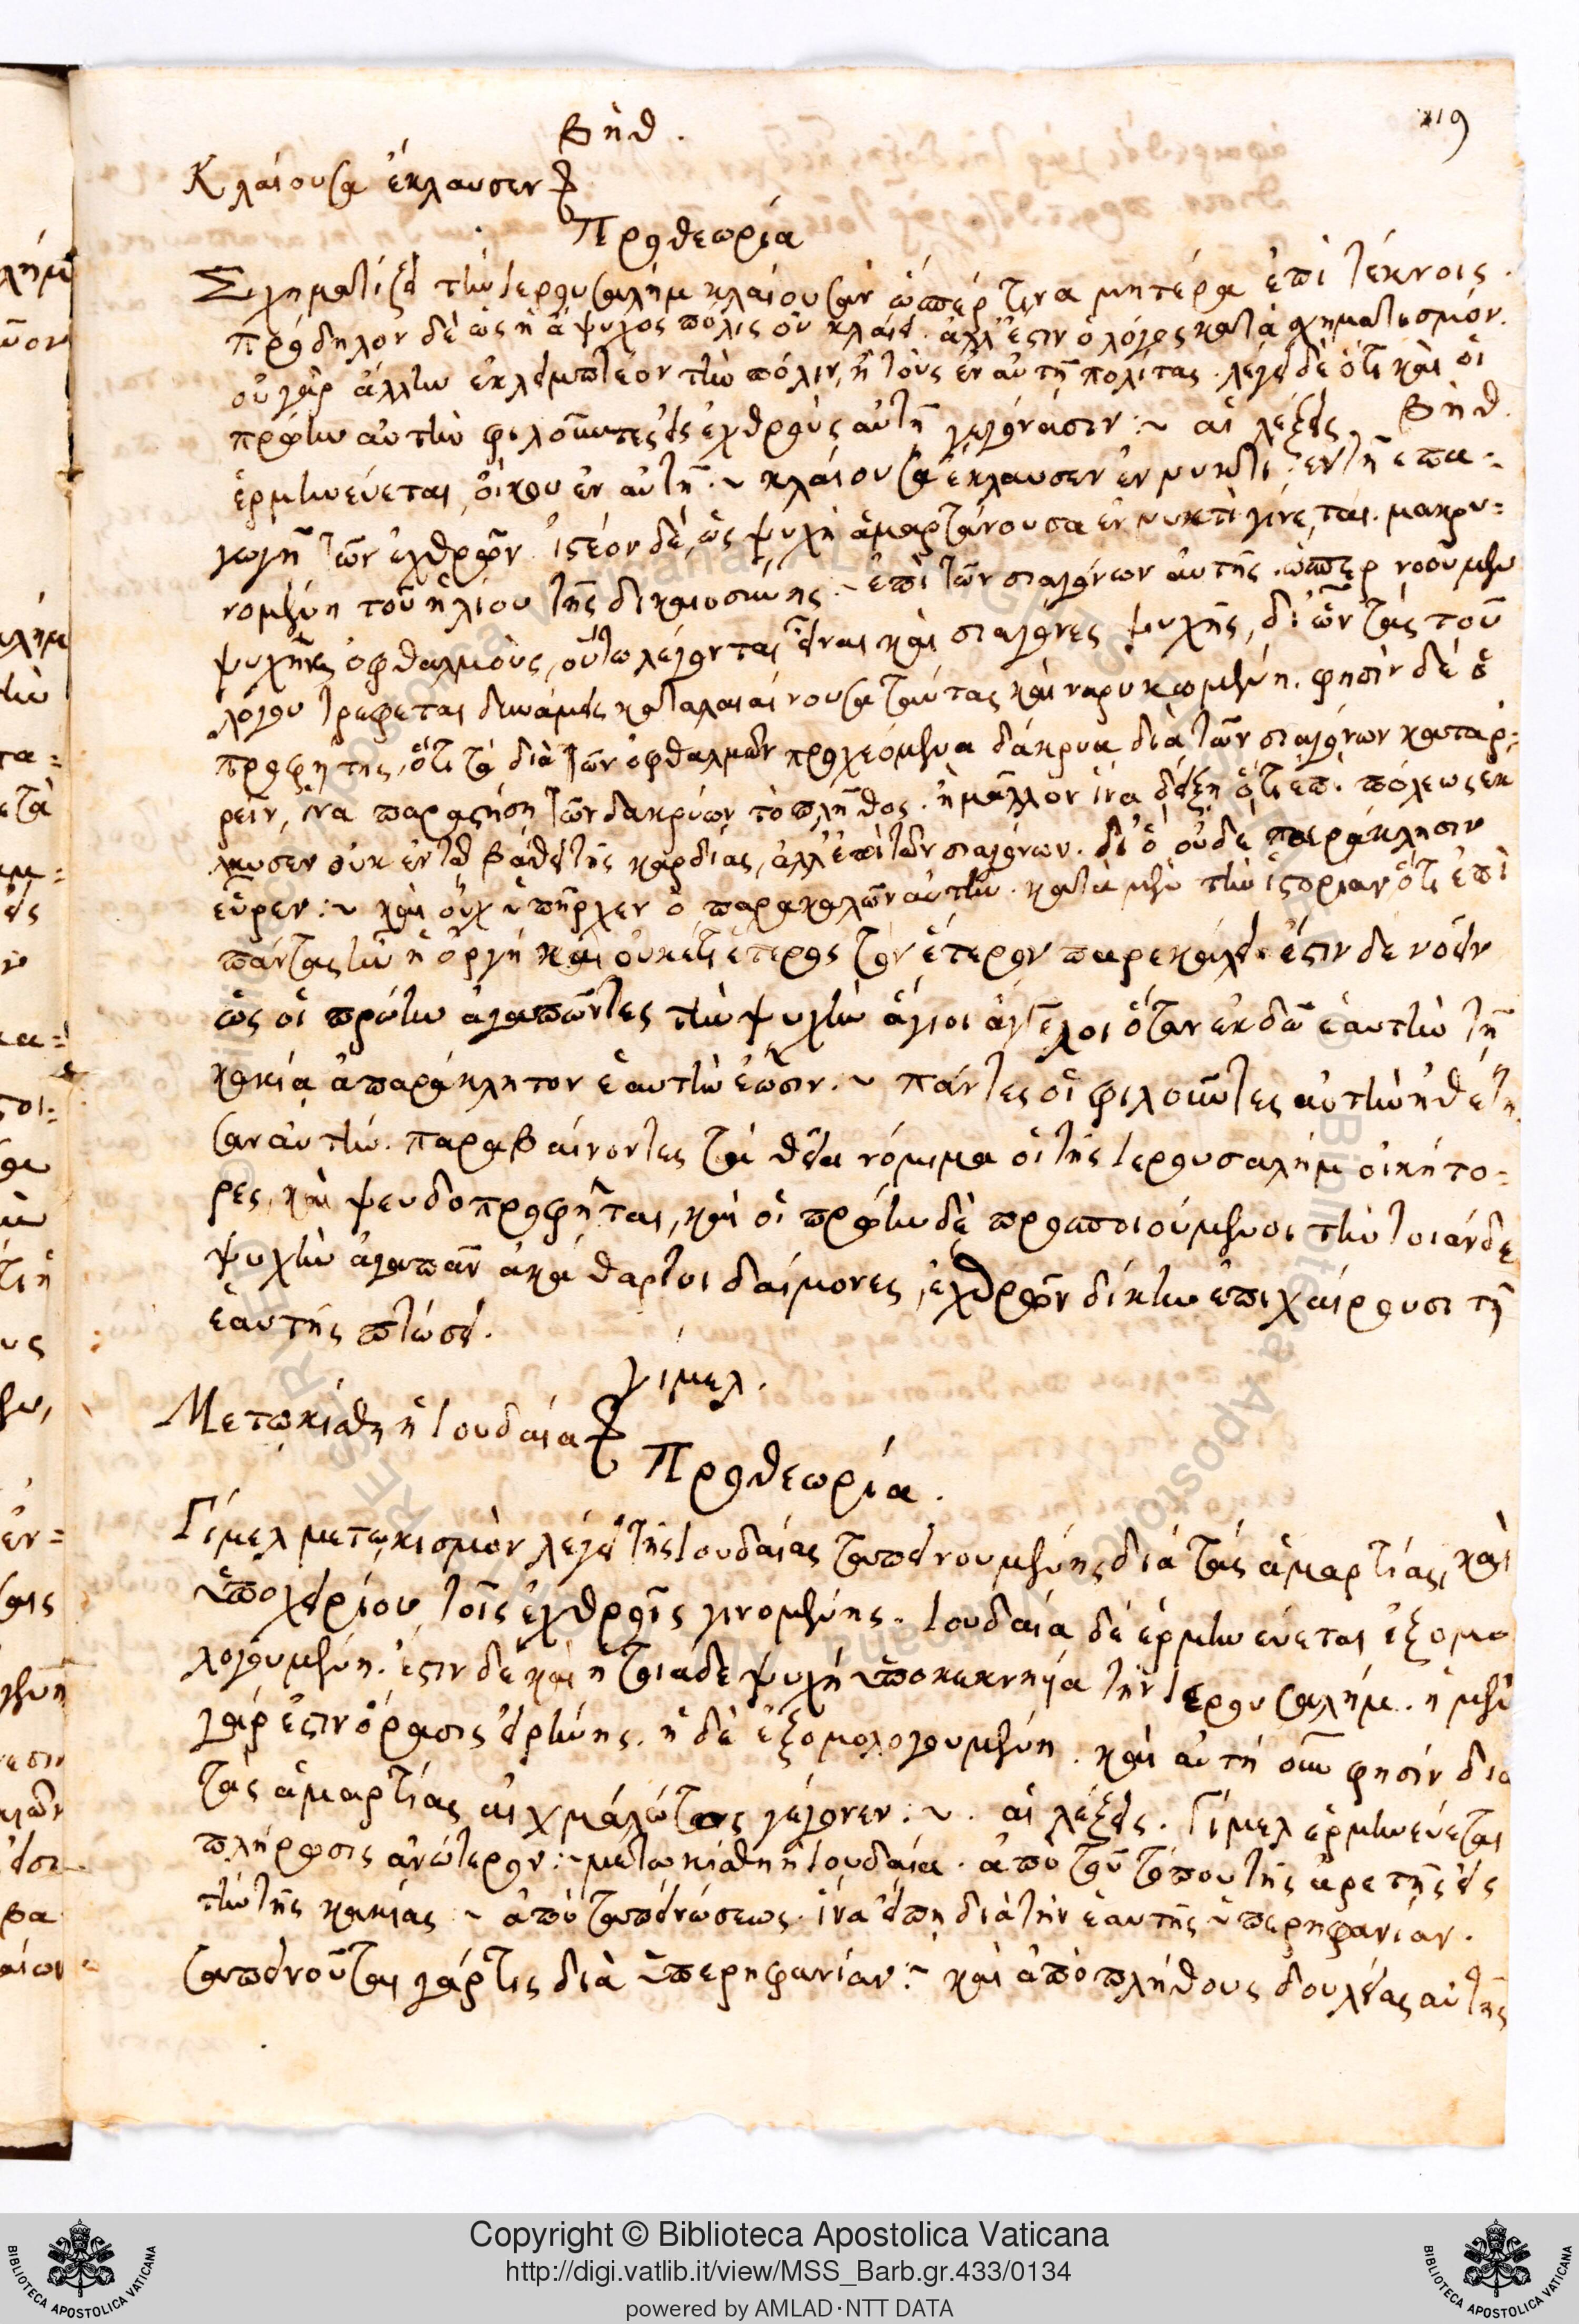 119
Βήθ.
Κλαίουσα ἔκλαυσεν
Προθεωρία
Σχηματίζει τὴν Ἱερουσαλὴμ κλαίουσαν ὥσπέρ τινα μητέρα ἐπὶ τέκνοις.
πρόδηλον δὲ ὡς ἡ ἄψυχος πόλις οὐ κλαίει. ἀλλ' ἔστιν ὁ λόγος κατὰ σχηματισμόν.
οὐ γὰρ ἄλλην ἐκληπτέον τὴν πόλιν, ἢ τοὺς ἐν αὐτῇ πολίτας. λέγει δὲ ὅτι καὶ οἱ
πρώην αὐτὴν φιλοῦντες εἰς ἐχθροὺς αὐτῇ γεγόνασιν :~ αἱ λέξεις Βήθ.
ἑρμηνεύεται, οἴκου ἐν αὐτῇ .~ κλαίουσα ἔκλαυσεν ἐν νυκτί. ἐν τῇ ἐπα-
γωγῇ τῶν ἐχθρῶν. ἰστέον δὲ, ὡς ψυχὴ ἁμαρτάνουσα ἐν νυκτὶ γίνεται. μακρυ-
νομένη τοῦ ἡλίου τῆς δικαιοσύνης .~ ἐπὶ τῶν σιαγόνων αὐτῆς. ὥσπερ νοοῦμεν
ψυχῆς ὀφθαλμοὺς, οὕτω λέγονται εἶναι καὶ σιαγόνες ψυχῆς, δι' ὧν τὰς τοῦ
λόγου τρέφεται δυνάμεις καταλεαίνουσα ταύτας καὶ μαρυκωμένη. φησὶν δὲ ὁ
προφήτης, ὅτι τὰ διὰ τῶν ὀφθαλμῶν προχεόμενα δάκρυα διὰ τῶν σιαγόνων καταρ-
ρεῖν, ἵνα παραστήσῃ τῶν δακρύων τὸ πλῆθος. ἢ μᾶλλον ἵνα δείξῃ ὅτι ἐπὶ πόλεως ἔκ
λαυσεν οὐκ ἐν τῷ βάθει τῆς καρδίας, ἀλλ' ἐπὶ τῶν σιαγόνων. δι' ὃ οὐδὲ παράκλησιν
εὗρεν :~ καὶ οὐχ ὑπῆρχεν ὁ παρακαλῶν αὐτὴν. κατὰ μὲν τὴν ἱστορίαν ὅτι ἐπὶ
πάντας ἦν ἡ ὀργή καὶ οὐκέτι ἕτερος τὸν ἕτερον παρεκάλει. ἔστιν δὲ νοεῖν
ὡς οἱ πρώην ἀγαπῶντες τὴν ψυχὴν ἅγιοι ἄγγελοι ὅταν ἐκδῷ ἑαυτὴν τῇ
κακίᾳ ἀπαράκλητον ἑαυτὴν ἐῶσιν .~ πάντες οἱ φιλοῦντες αὐτὴν ἠθέτη
σαν αὐτήν. παραβαίνοντες τὰ θεῖα νόμιμα οἱ τῆς Ἱερουσαλὴμ οἰκήτο-
ρες, καὶ ψευδοπροφῆται, καὶ οἱ πρώην δὲ προσποιούμενοι τὴν τοιάνδε
ψυχὴν ἀγαπᾶν ἀκάθαρτοι δαίμονες, ἐχθρῶν δίκην ἐπιχαίρουσι τῇ
ἑαυτῆς πτώσει.
Γίμελ.
Μετῳκίσθη ἡ Ἰουδαία
Προθεωρία.
Γίμελ μετοικισμὸν λέγει τῆς Ἰουδαίας ταπεινουμένης διὰ τὰς ἁμαρτίας, καὶ
ὑποχειρίου τοῖς ἐχθροῖς γινομένης. Ἰουδαία δὲ ἑρμηνεύεται ἐξομο
λογουμένη. ἔστιν δὲ καὶ ἡ τοιάδε ψυχὴ ὑποκεκνηῖα τὴν Ἱερουσαλήμ. ἡ μὲν
γάρ ἐστιν ὅρασις εἰρήνης. ἡ δὲ ἐξομολογουμένη. καὶ αὐτή οὖν φησίν διὰ
τὰς ἁμαρτίας αἰχμάλωτος γέγονεν :~. αἱ λέξεις. Γίμελ ἑρμηνεύεται
πλήρωσις ἀνώτερον :~ μετῳκίσθη ἡ Ἰουδαία. ἀπὸ τοῦ τόπου τῆς ἀρετῆς εἰς
τὴν τῆς κακίας .~ ἀπὸ ταπεινώσεως. ἵνα εἴπῃ διὰ τὴν ἑαυτῆς ὑπερηφανίαν.
ταπεινοῦται γάρ τις διὰ ὑπερηφανίαν :~ καὶ ἀπὸ πλήθους δουλείας αὐτῆς